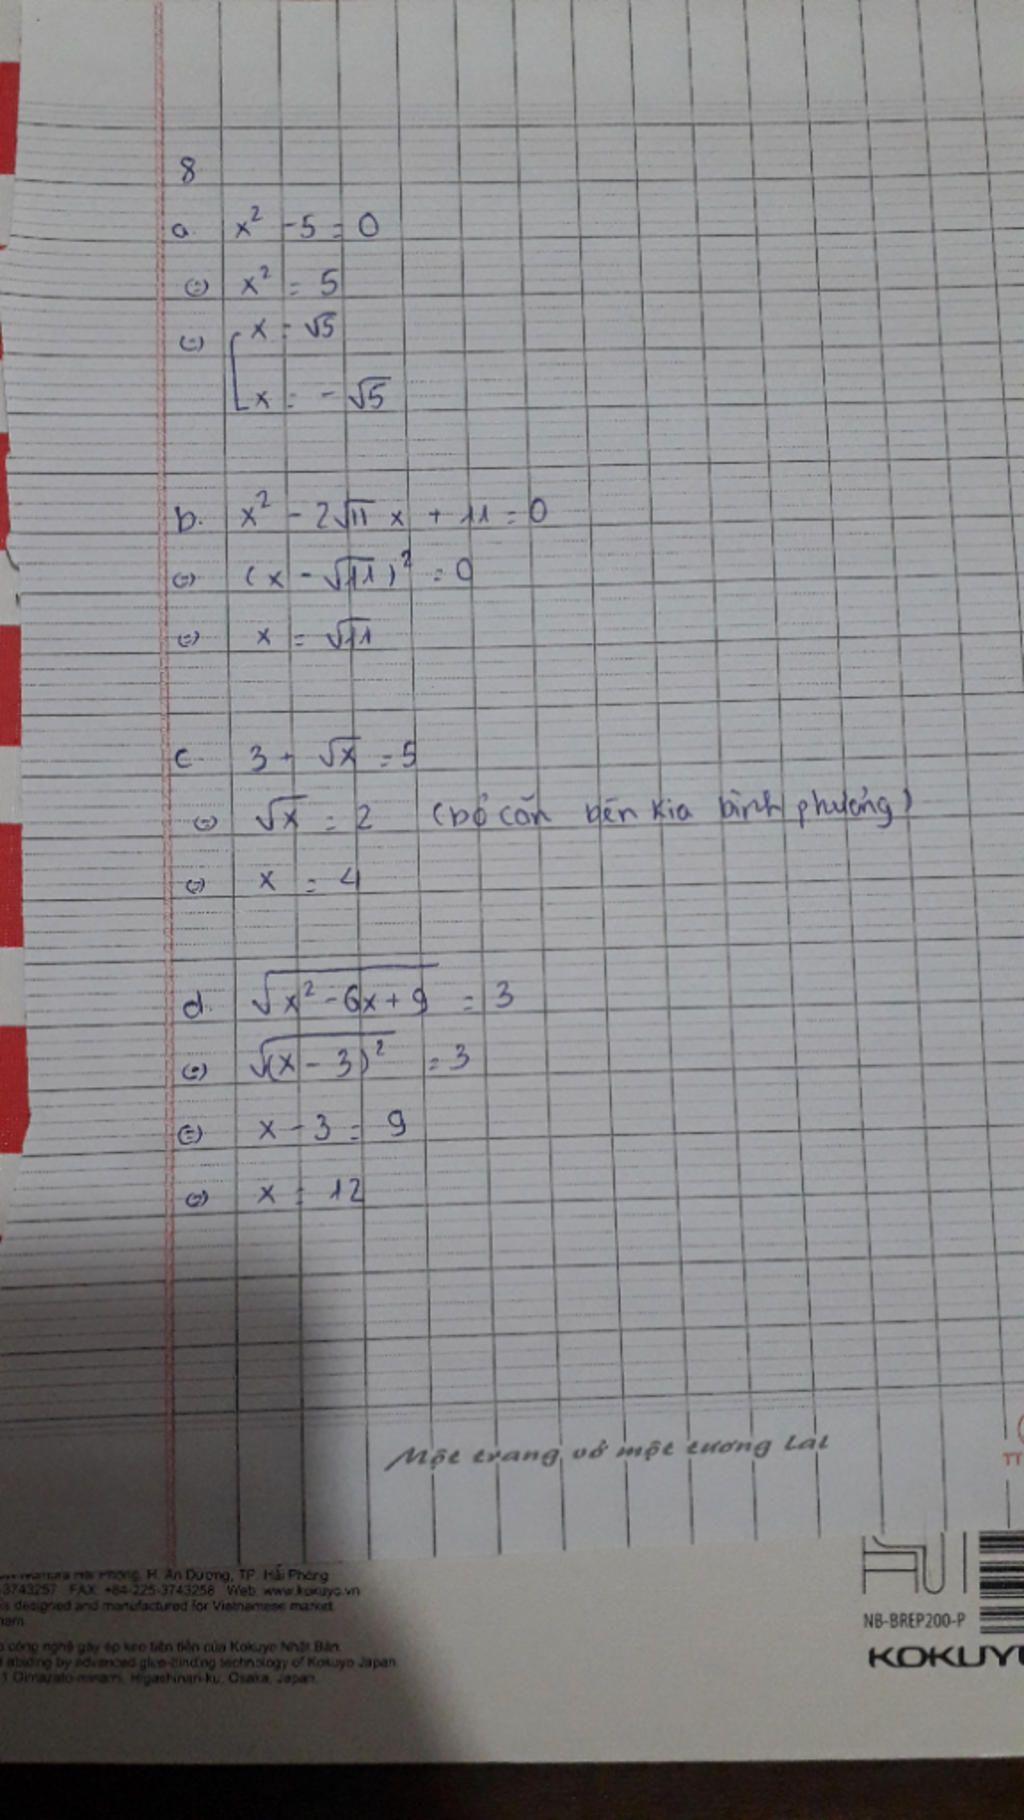 8
a. x² - 5 = 0
(=) x² = 5
(=) [ x = √5
x = - √5
b. x² - 2√11 x + 11 = 0
(=) (x - √11)² = 0
(=) x = √11
c. 3 + √x = 5
(=) √x = 2 (bỏ căn bên kia bình phương)
(=) x = 4
d. √x² - 6x + 9 = 3
(=) √(x - 3)² = 3
(=) x - 3 = 9
(=) x = 12
Một trang vở một tương lai
Hải Phòng, H. An Dương, TP. Hải Phòng
3743257 FAX: +84-225-3743258 Web: www.kokuyo.vn
is designed and manufactured for Vietnamese market
công nghệ gáy ép keo tiên tiến của Kokuyo Nhật Bản
by advanced glue-binding technology of Kokuyo Japan
Higashinari-ku, Osaka, Japan
NB-BREP200-P
KOKUYO